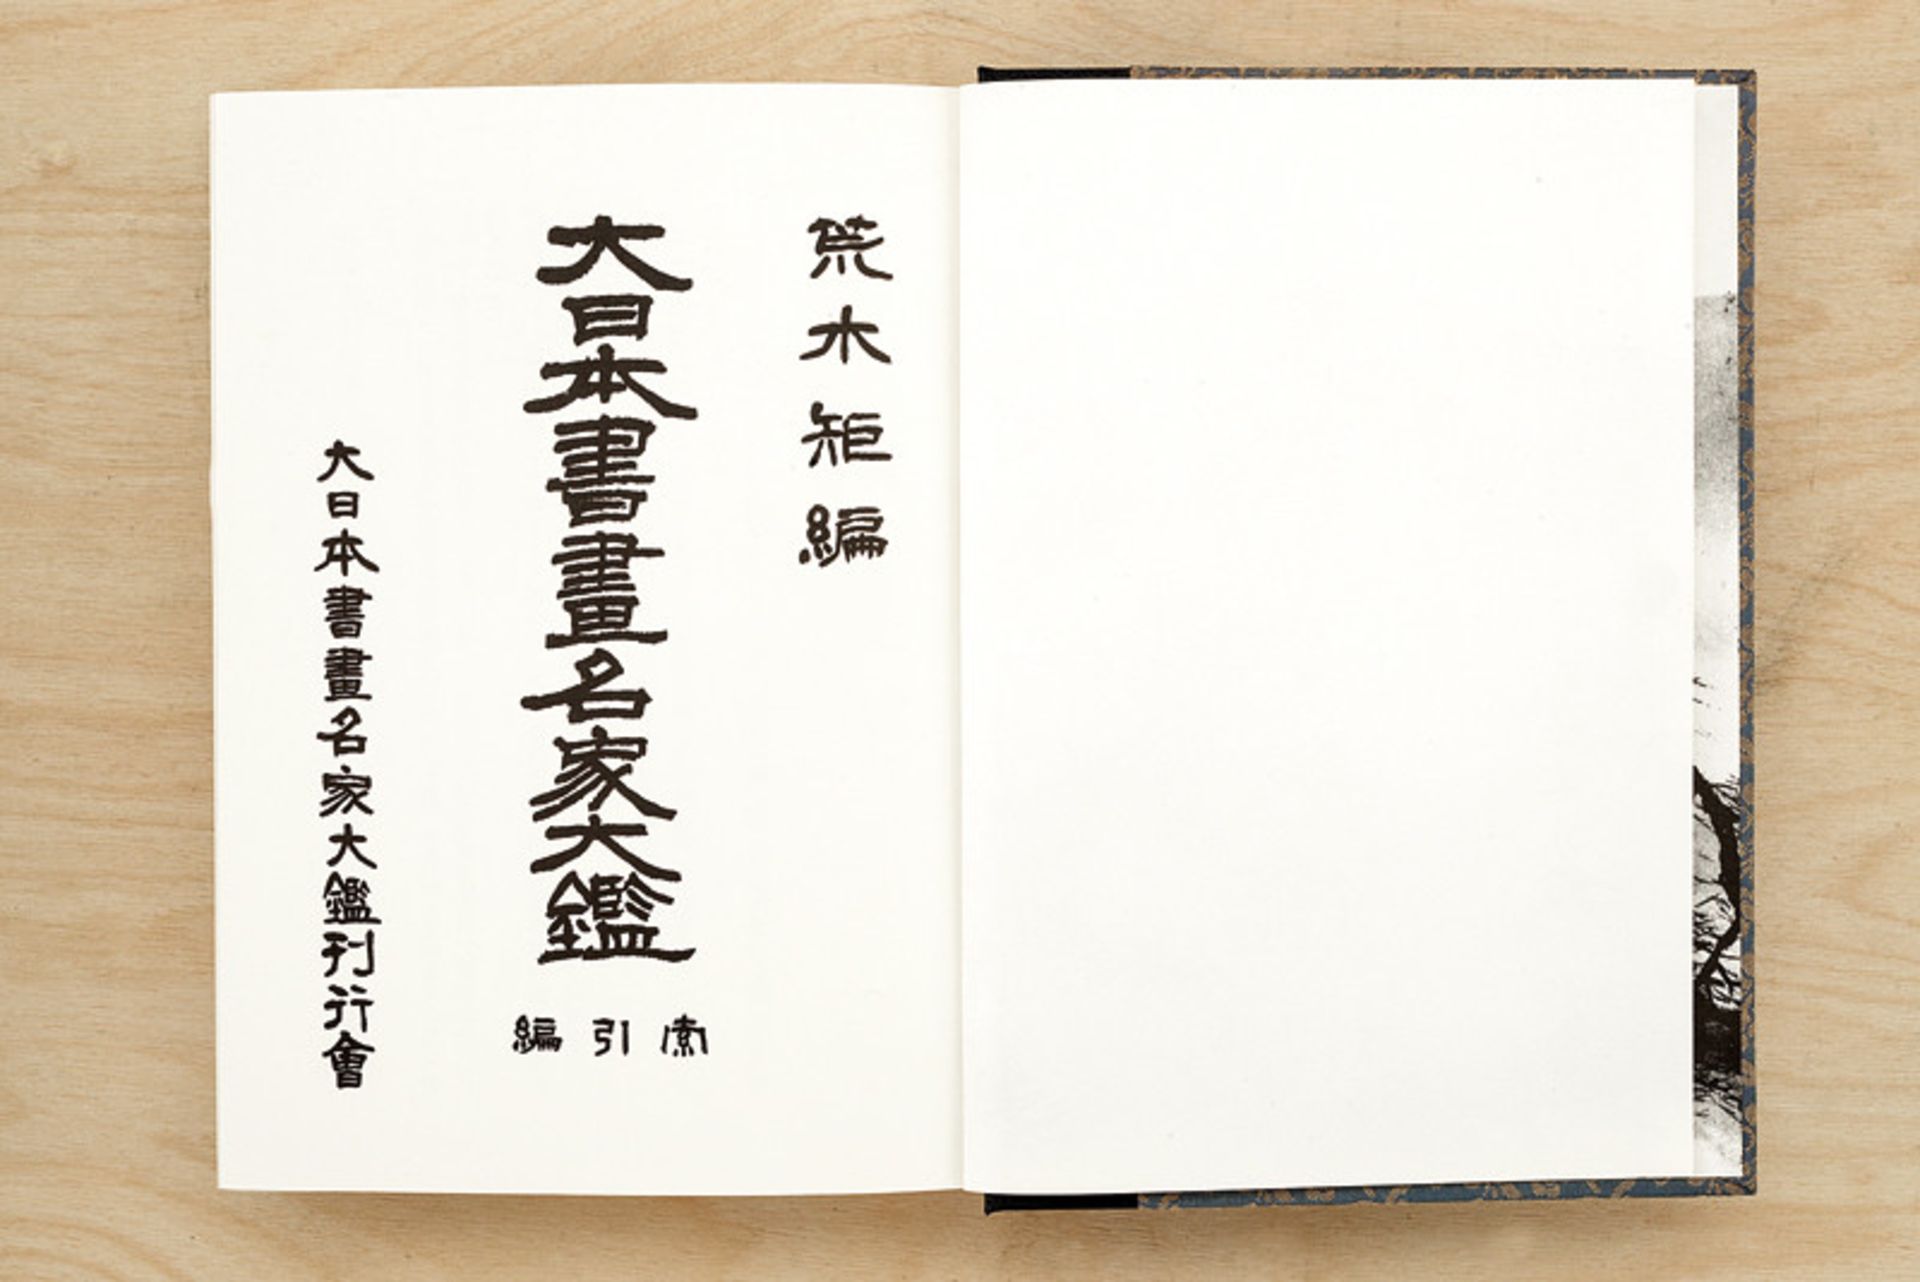 荒木矩編
大日本書畫名家大鑑
索引編
大日本書畫名家大鑑刊行會